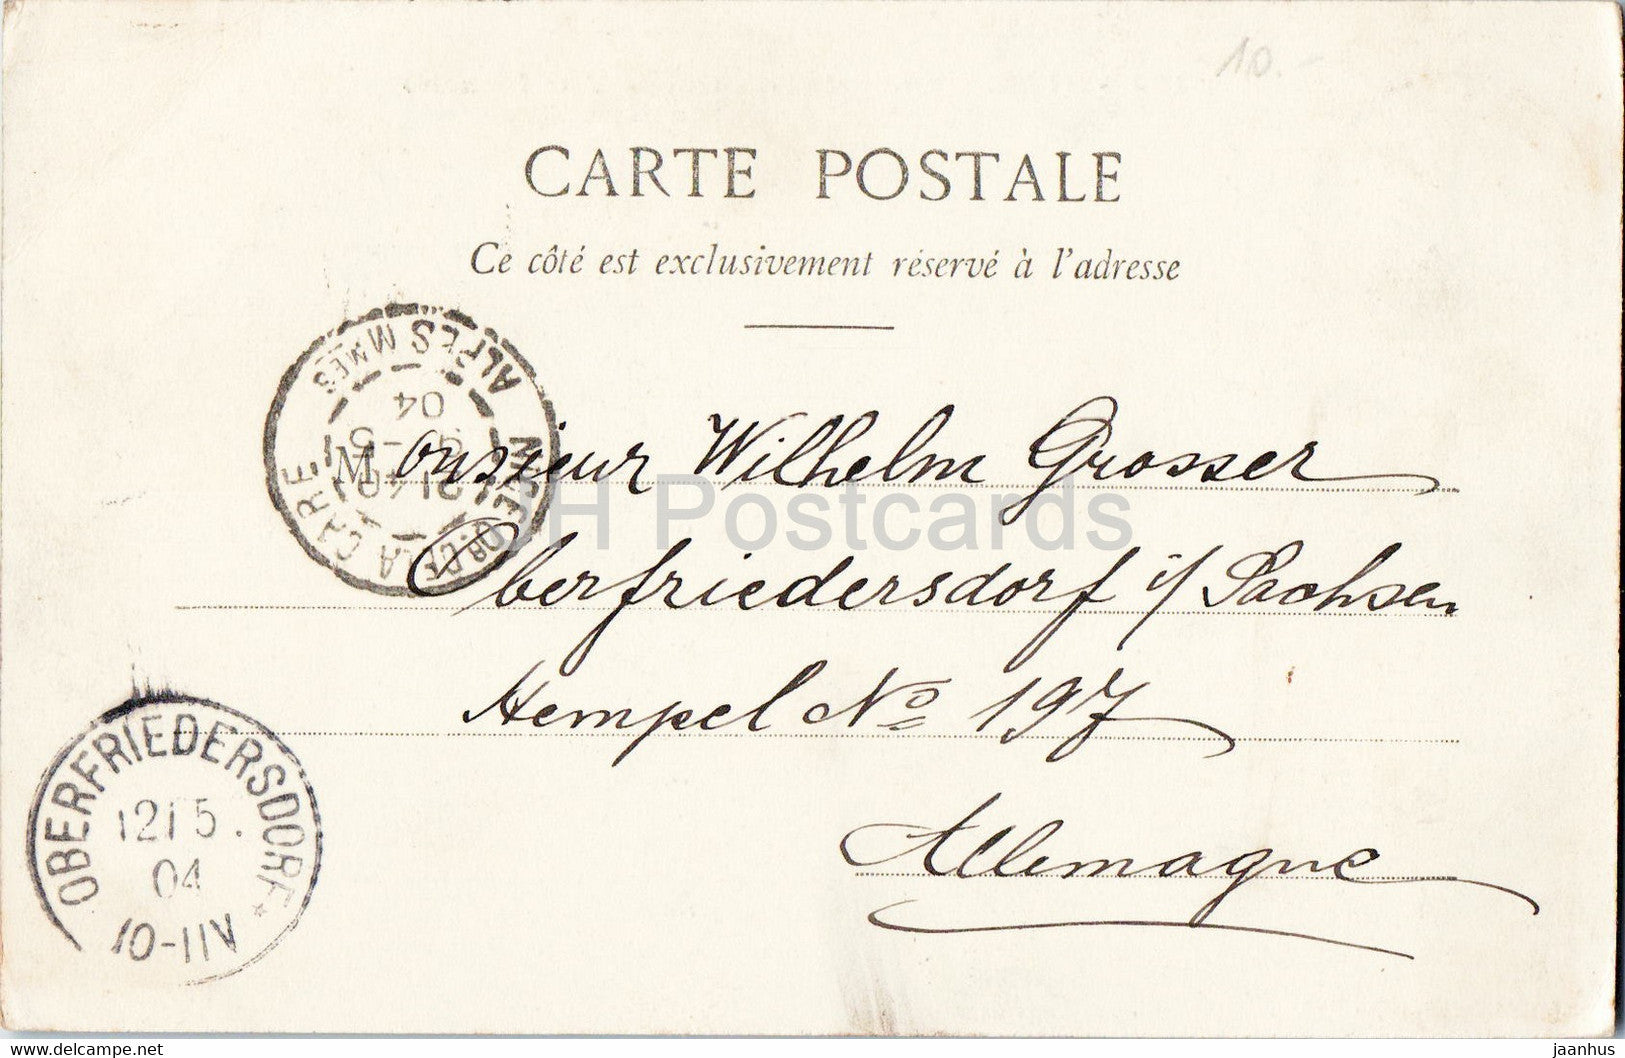 10.-
CARTE POSTALE
Ce côté est exclusivement réservé à l'adresse
ALPES MMES
04
9 -5
21 40
NICE
DE LA GARE
Monsieur Wilhelm Grosser
JH Postcards
Oberfriedersdorf i/ Sachsen
Hempel No 197
Allemagne
OBERFRIEDERSDORF *
12 5.
04
10-11V
www.delcampe.net
jaanhus